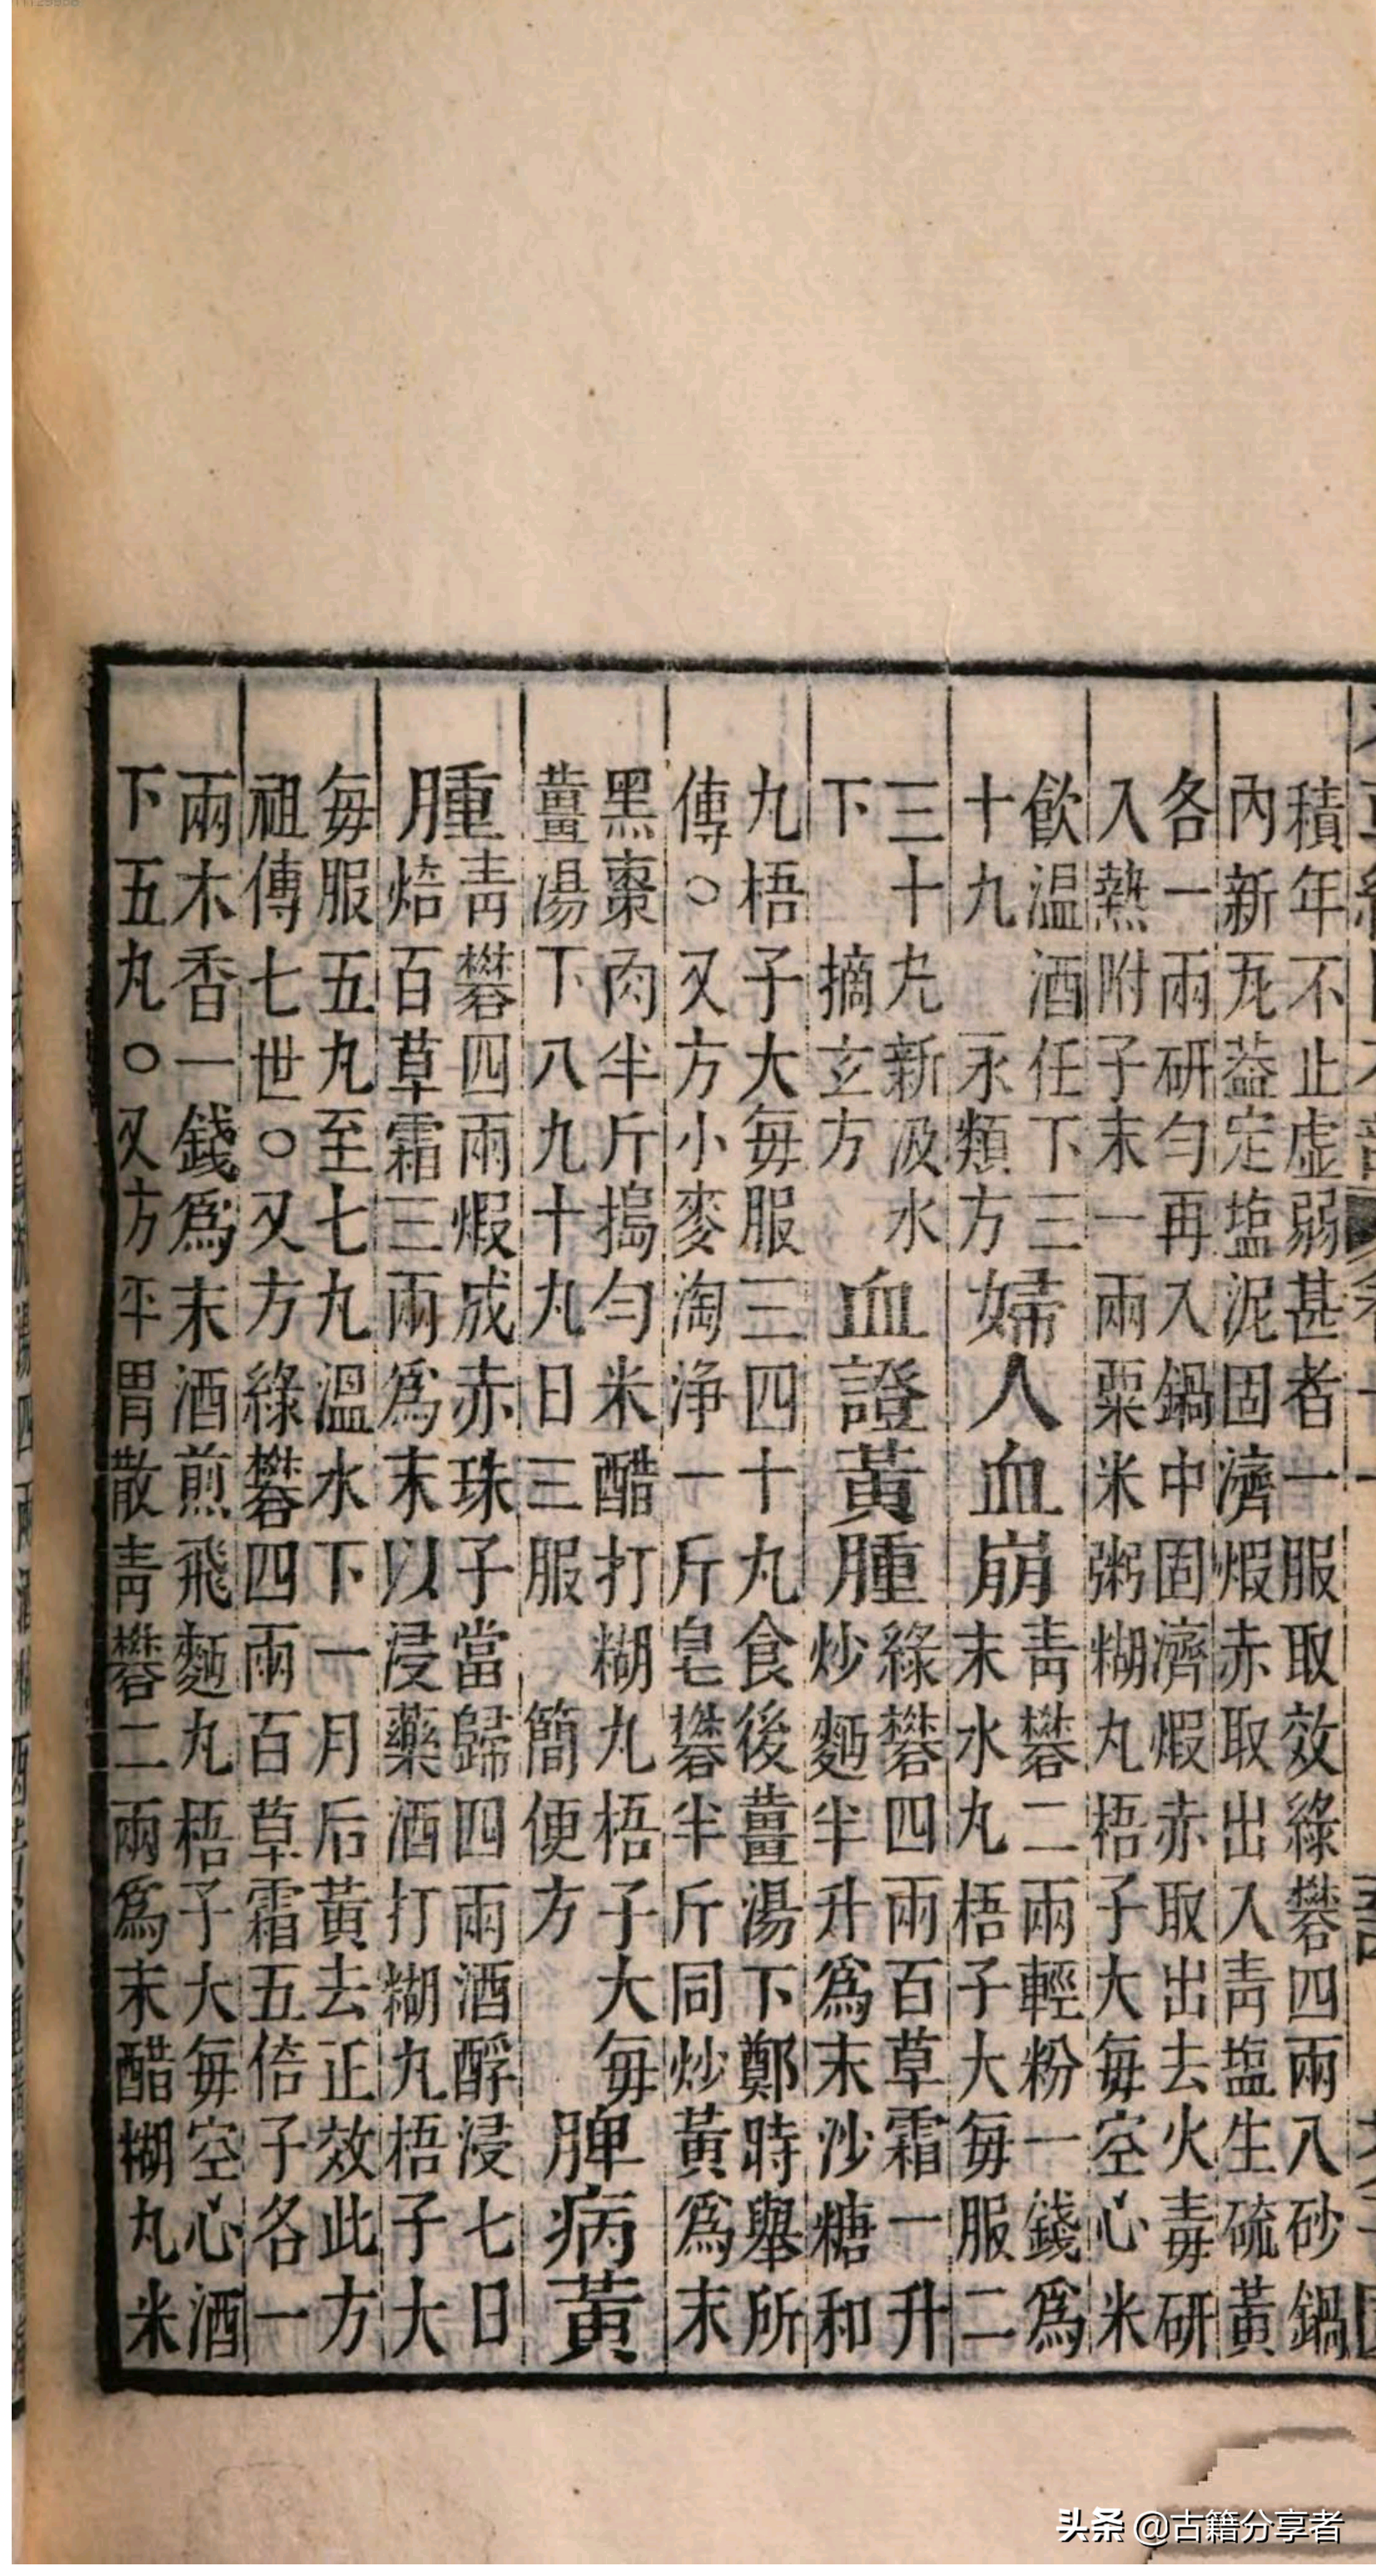 積年不止虛弱甚者一服取效綠礬四兩入砂鍋
內新瓦葢定塩泥固濟煆赤取出入青塩生硫黃
各一兩研勻再入鍋中固濟煆赤取出去火毒研
入熱附子末一兩粟米粥糊丸梧子大每空心米
飲温酒任下三
十九 永類方
婦人血崩
青礬二兩輕粉一錢爲
末水丸梧子大每服二
三十丸新汲水
下 摘玄方
血證黃腫
綠礬四兩百草霜一升
炒麪半升爲末沙糖和
九梧子大每服三四十丸食後薑湯下鄭時舉所
傳○又方小麥淘淨一斤皂礬半斤同炒黃爲末
黑棗肉半斤搗勻米醋打糊九梧子大每
薑湯下八九十丸日三服 簡便方
脾病黃
腫
青礬四兩煆成赤珠子當歸四兩酒酻浸七日
焙百草霜三兩爲末以浸藥酒打糊九梧子大
每服五九至七九溫水下一月后黃去正效此方
祖傳七世○又方綠礬四兩百草霜五倍子各一
兩木香一錢爲末酒煎飛麪丸梧子大每空心酒
下五丸○又方平胃散青礬二兩爲末醋糊丸米
头条 @古籍分享者